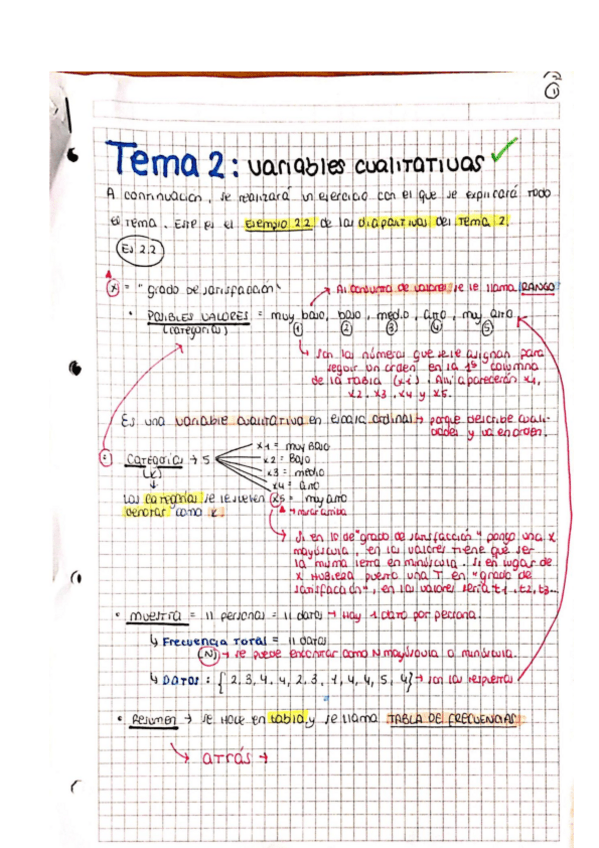 1
Tema 2: variables cualitativas ✓
A continuación, se realizará un ejercicio con el que se explicará todo
el tema. Este es el Ejemplo 2.2 de las diapositivas del Tema 2.
Ej 2.2
X = "grado de satisfacción"
→ Al conjunto de valores se le llama RANGO
• POSIBLES VALORES = muy bajo, bajo, medio, alto, muy alto
(categorías) 1 2 3 4 5
↳ son los números que se le asignan para
seguir un orden en la 1ª columna
de la tabla (xi). Ahí aparecerán x1,
x2, x3, x4 y x5.
Es una variable cualitativa en escala ordinal → porque describe cuali-
dades y va en orden.
Categorías → 5
(K)
x1 = muy Bajo
x2 = Bajo
x3 = medio
x4 = alto
x5 = muy alto
Las categorías se le suelen
denotar como K.
→ mirar arriba
→ Si en lo de "grado de satisfacción" pongo una X
mayúscula, en los valores tiene que ser
la misma letra en minúscula. Si en lugar de
X HUBIERA puesto una T en "grado de
satisfacción", en los valores sería t1, t2, t3...
• muestra = 11 personas = 11 datos → Hay 1 dato por persona.
↳ Frecuencia Total = 11 datos
(N) → se puede encontrar como N mayúscula o minúscula.
↳ DATOS: { 2, 3, 4, 4, 2, 3, 1, 4, 4, 5, 4} → son las respuestas
• Resumen → se hace en tabla y se llama TABLA DE FRECUENCIAS
↳ atrás →